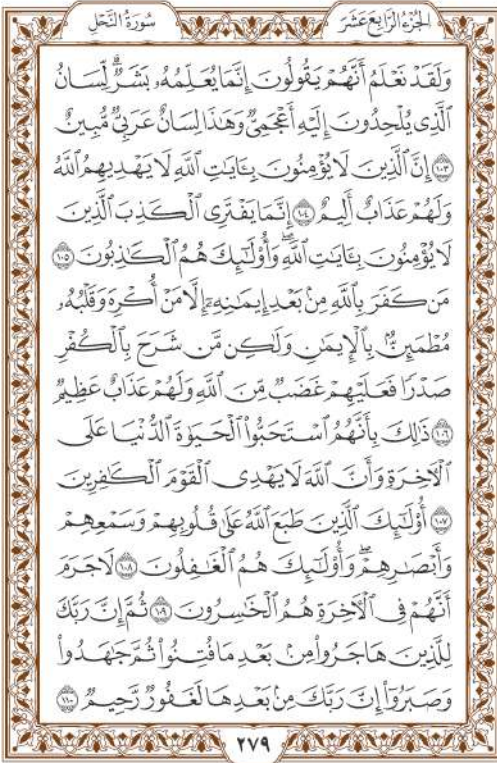 الجُزْءُ الرَّابِعَ عَشَرَ سُورَةُ النَّحْلِ
وَلَقَدْ نَعْلَمُ أَنَّهُمْ يَقُولُونَ إِنَّمَا يُعَلِّمُهُۥ بَشَرٌۗ لِّسَانُ
ٱلَّذِى يُلْحِدُونَ إِلَيْهِ أَعْجَمِىٌّ وَهَٰذَا لِسَانٌ عَرَبِىٌّ مُّبِينٌ
۝١٠٣ إِنَّ ٱلَّذِينَ لَا يُؤْمِنُونَ بِـَٔايَٰتِ ٱللَّهِ لَا يَهْدِيهِمُ ٱللَّهُ
وَلَهُمْ عَذَابٌ أَلِيمٌ ۝١٠٤ إِنَّمَا يَفْتَرِى ٱلْكَذِبَ ٱلَّذِينَ
لَا يُؤْمِنُونَ بِـَٔايَٰتِ ٱللَّهِۖ وَأُو۟لَٰٓئِكَ هُمُ ٱلْكَٰذِبُونَ ۝١٠٥
مَن كَفَرَ بِٱللَّهِ مِنۢ بَعْدِ إِيمَٰنِهِۦٓ إِلَّا مَنْ أُكْرِهَ وَقَلْبُهُۥ
مُطْمَئِنٌّۢ بِٱلْإِيمَٰنِ وَلَٰكِن مَّن شَرَحَ بِٱلْكُفْرِ
صَدْرًا فَعَلَيْهِمْ غَضَبٌ مِّنَ ٱللَّهِ وَلَهُمْ عَذَابٌ عَظِيمٌ
۝١٠٦ ذَٰلِكَ بِأَنَّهُمُ ٱسْتَحَبُّوا۟ ٱلْحَيَوٰةَ ٱلدُّنْيَا عَلَى
ٱلْـَٔاخِرَةِ وَأَنَّ ٱللَّهَ لَا يَهْدِى ٱلْقَوْمَ ٱلْكَٰفِرِينَ
۝١٠٧ أُو۟لَٰٓئِكَ ٱلَّذِينَ طَبَعَ ٱللَّهُ عَلَىٰ قُلُوبِهِمْ وَسَمْعِهِمْ
وَأَبْصَٰرِهِمْۖ وَأُو۟لَٰٓئِكَ هُمُ ٱلْغَٰفِلُونَ ۝١٠٨ لَا جَرَمَ
أَنَّهُمْ فِى ٱلْـَٔاخِرَةِ هُمُ ٱلْخَٰسِرُونَ ۝١٠٩ ثُمَّ إِنَّ رَبَّكَ
لِلَّذِينَ هَاجَرُوا۟ مِنۢ بَعْدِ مَا فُتِنُوا۟ ثُمَّ جَٰهَدُوا۟
وَصَبَرُوٓا۟ إِنَّ رَبَّكَ مِنۢ بَعْدِهَا لَغَفُورٌ رَّحِيمٌ ۝١١٠
٢٧٩